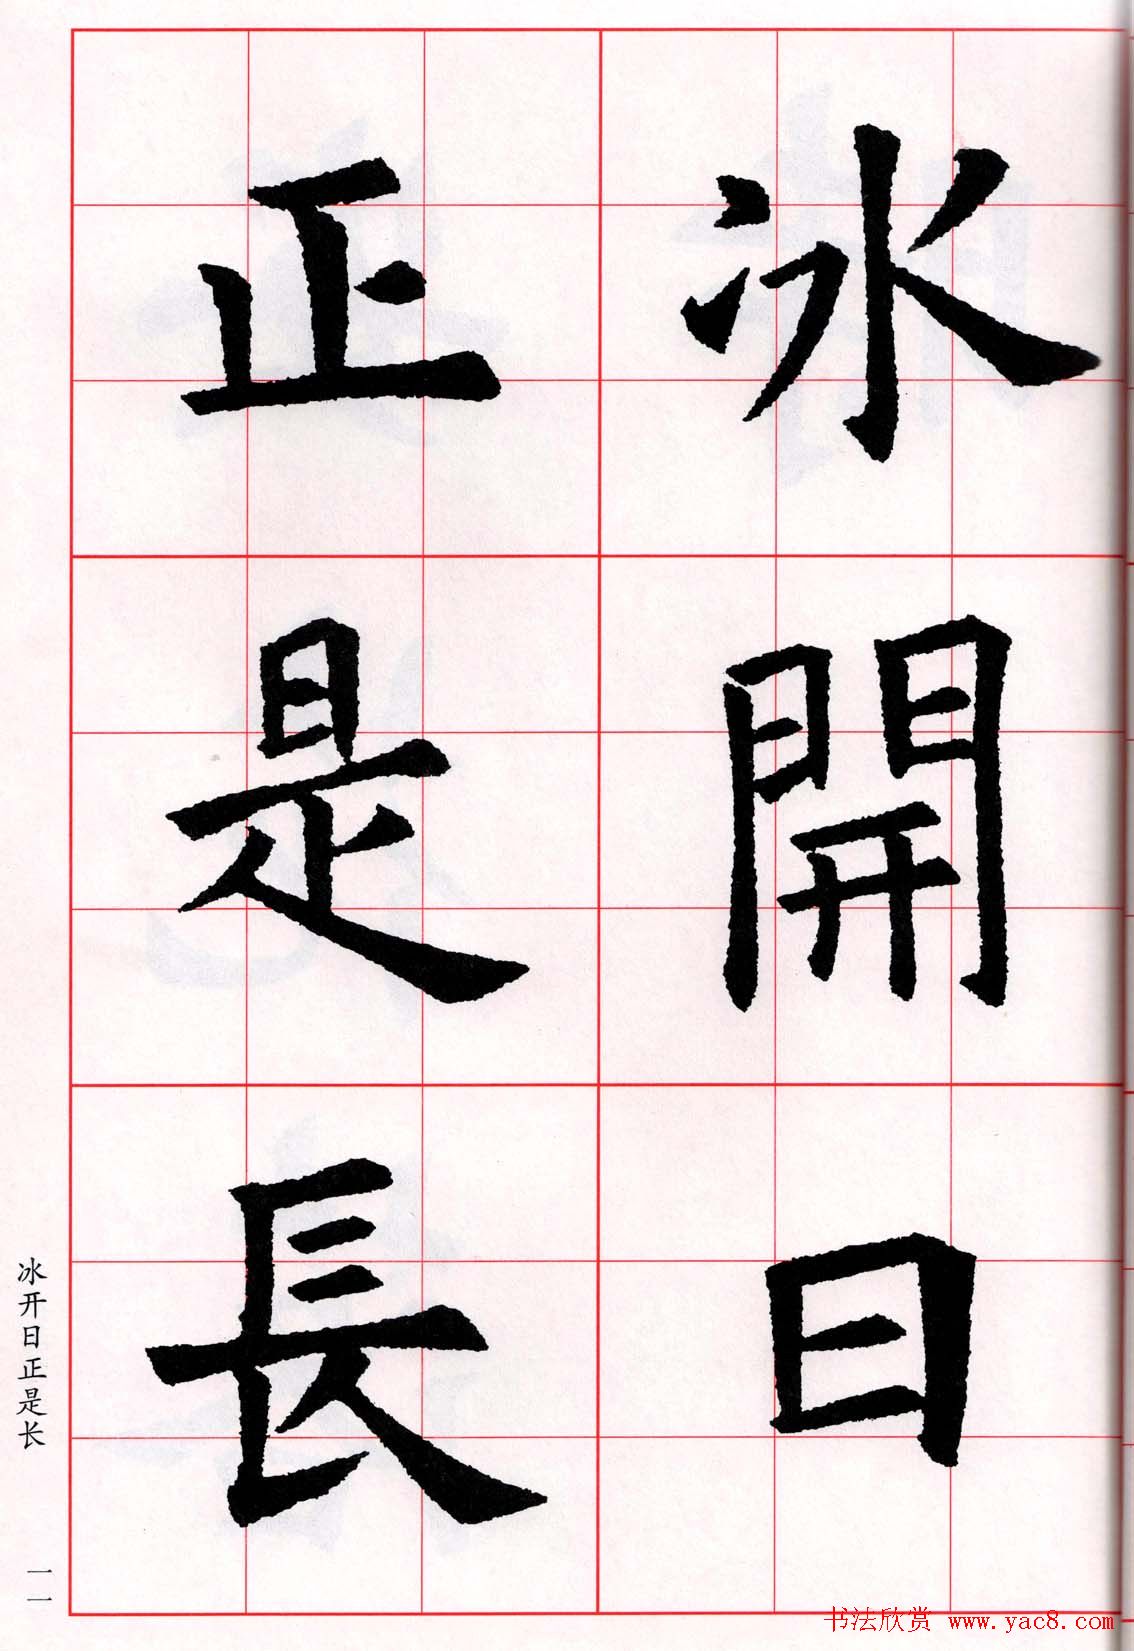 冰開日
正是長
冰开日正是长
一一
书法欣赏 www.yac8.com